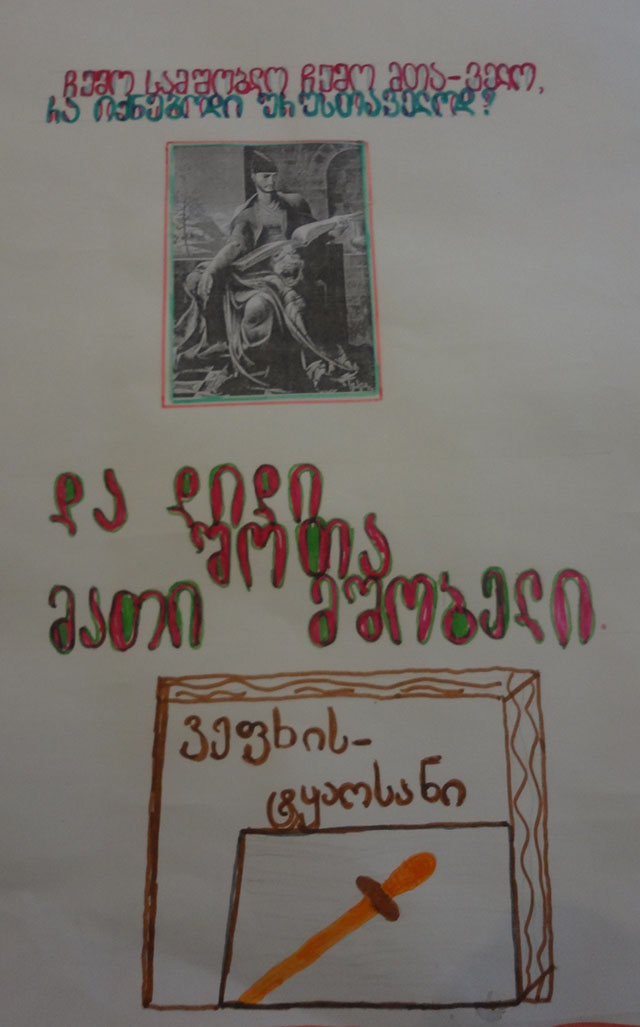 ჩემო სამშობლო ჩემო მთა-ველო,
რა იქნებოდი ურუსთაველოდ?
და დიდი
შოთა
მათი მშობელი.
ვეფხის-
ტყაოსანი